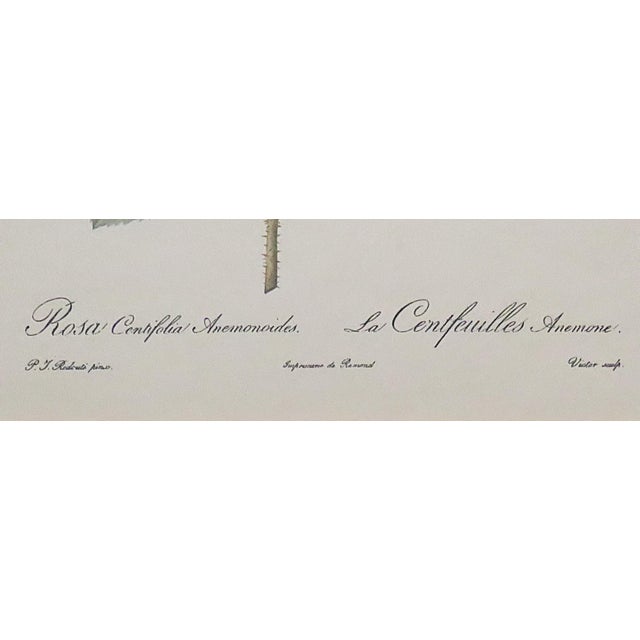 Rosa Centifolia Anemonoides. La Centfeuilles Anemone.
P. J. Redouté pinx. Imprimerie de Remond Victor sculp.